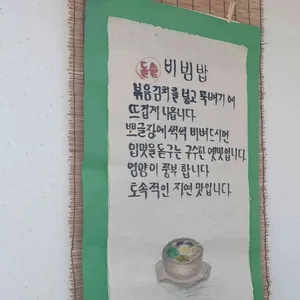 돌솥 비빔밥
볶음김치를 넣고 뚝배기에
뜨겁게 나옵니다
쁘글장에 썩썩 비벼드시면
입맛을돋구는 구수한 옛맛입니다.
영양이 풍부합니다
토속적인 자연 맛입니다